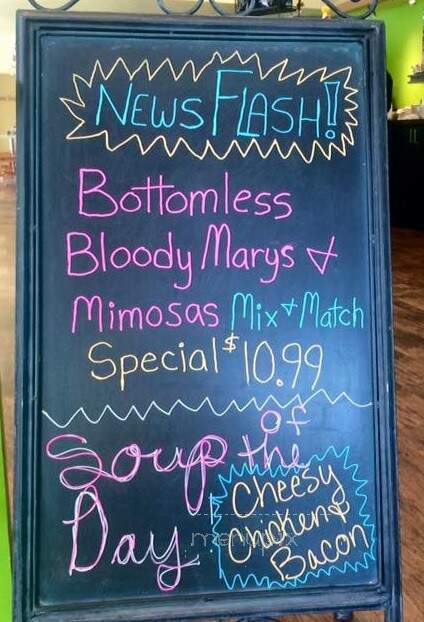 News Flash!
Bottomless
Bloody Marys &
Mimosas Mix & Match
Special $10.99
Soup of the
Day
Cheesy
Chicken &
Bacon
menupix